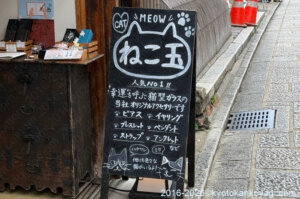 CAT
MEOW
ねこ玉
人気NO1!!
幸運を呼ぶ猫型ガラスの
当社オリジナルアクセサリーです
ピアス イヤリング
ブレスレット ペンダント
ストラップ アンクレット
2016-2026©kyotokankoyagi.com